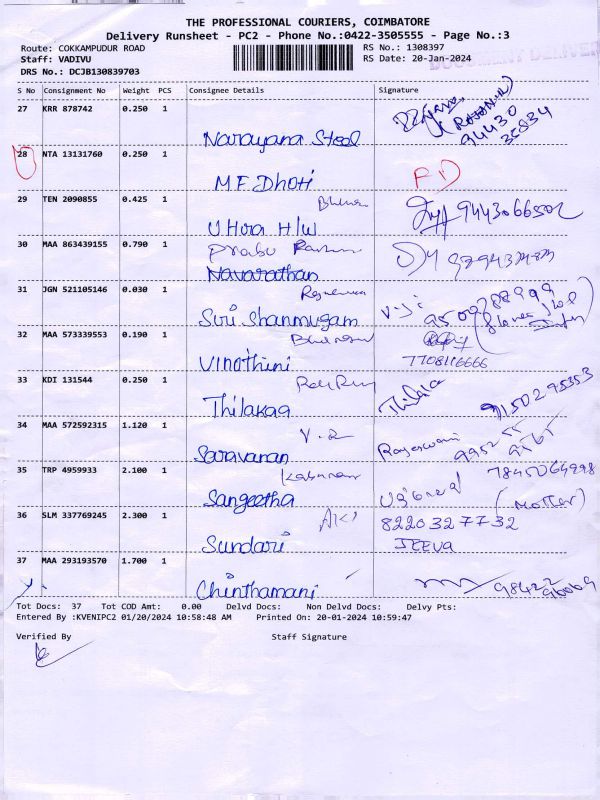 THE PROFESSIONAL COURIERS, COIMBATORE
Delivery Runsheet - PC2 - Phone No.:0422-3505555 - Page No.:3
Route: COKKAMPUDUR ROAD RS No.: 1308397
Staff: VADIVU RS Date: 20-Jan-2024
DRS No.: DCJB130839703
S No Consignment No Weight PCS Consignee Details Signature
27 KRR 878742 0.250 1
Narayana Steel 94430
28 NTA 13131760 0.250 1
M.F Dhoti
29 TEN 2090855 0.425 1
U Hora H/W 9443066502
30 MAA 863439155 0.790 1
Prabu
Navarathan
31 JGN 521105146 0.030 1
Siri Shanmugam
32 MAA 573339553 0.190 1
Vinothini 7708116666
33 KDI 131544 0.250 1
Thilakaa 9150295353
34 MAA 572592315 1.120 1
Saravanan
35 TRP 4959933 2.100 1
7845064898
Sangeetha (Mother)
36 SLM 337769245 2.300 1
8220327732
Sundari JEEVA
37 MAA 293193570 1.700 1
Chinthamani 98422
Tot Docs: 37 Tot COD Amt: 0.00 Delvd Docs: Non Delvd Docs: Delvy Pts:
Entered By :KVENIPC2 01/20/2024 10:58:48 AM Printed On: 20-01-2024 10:59:47
Verified By Staff Signature